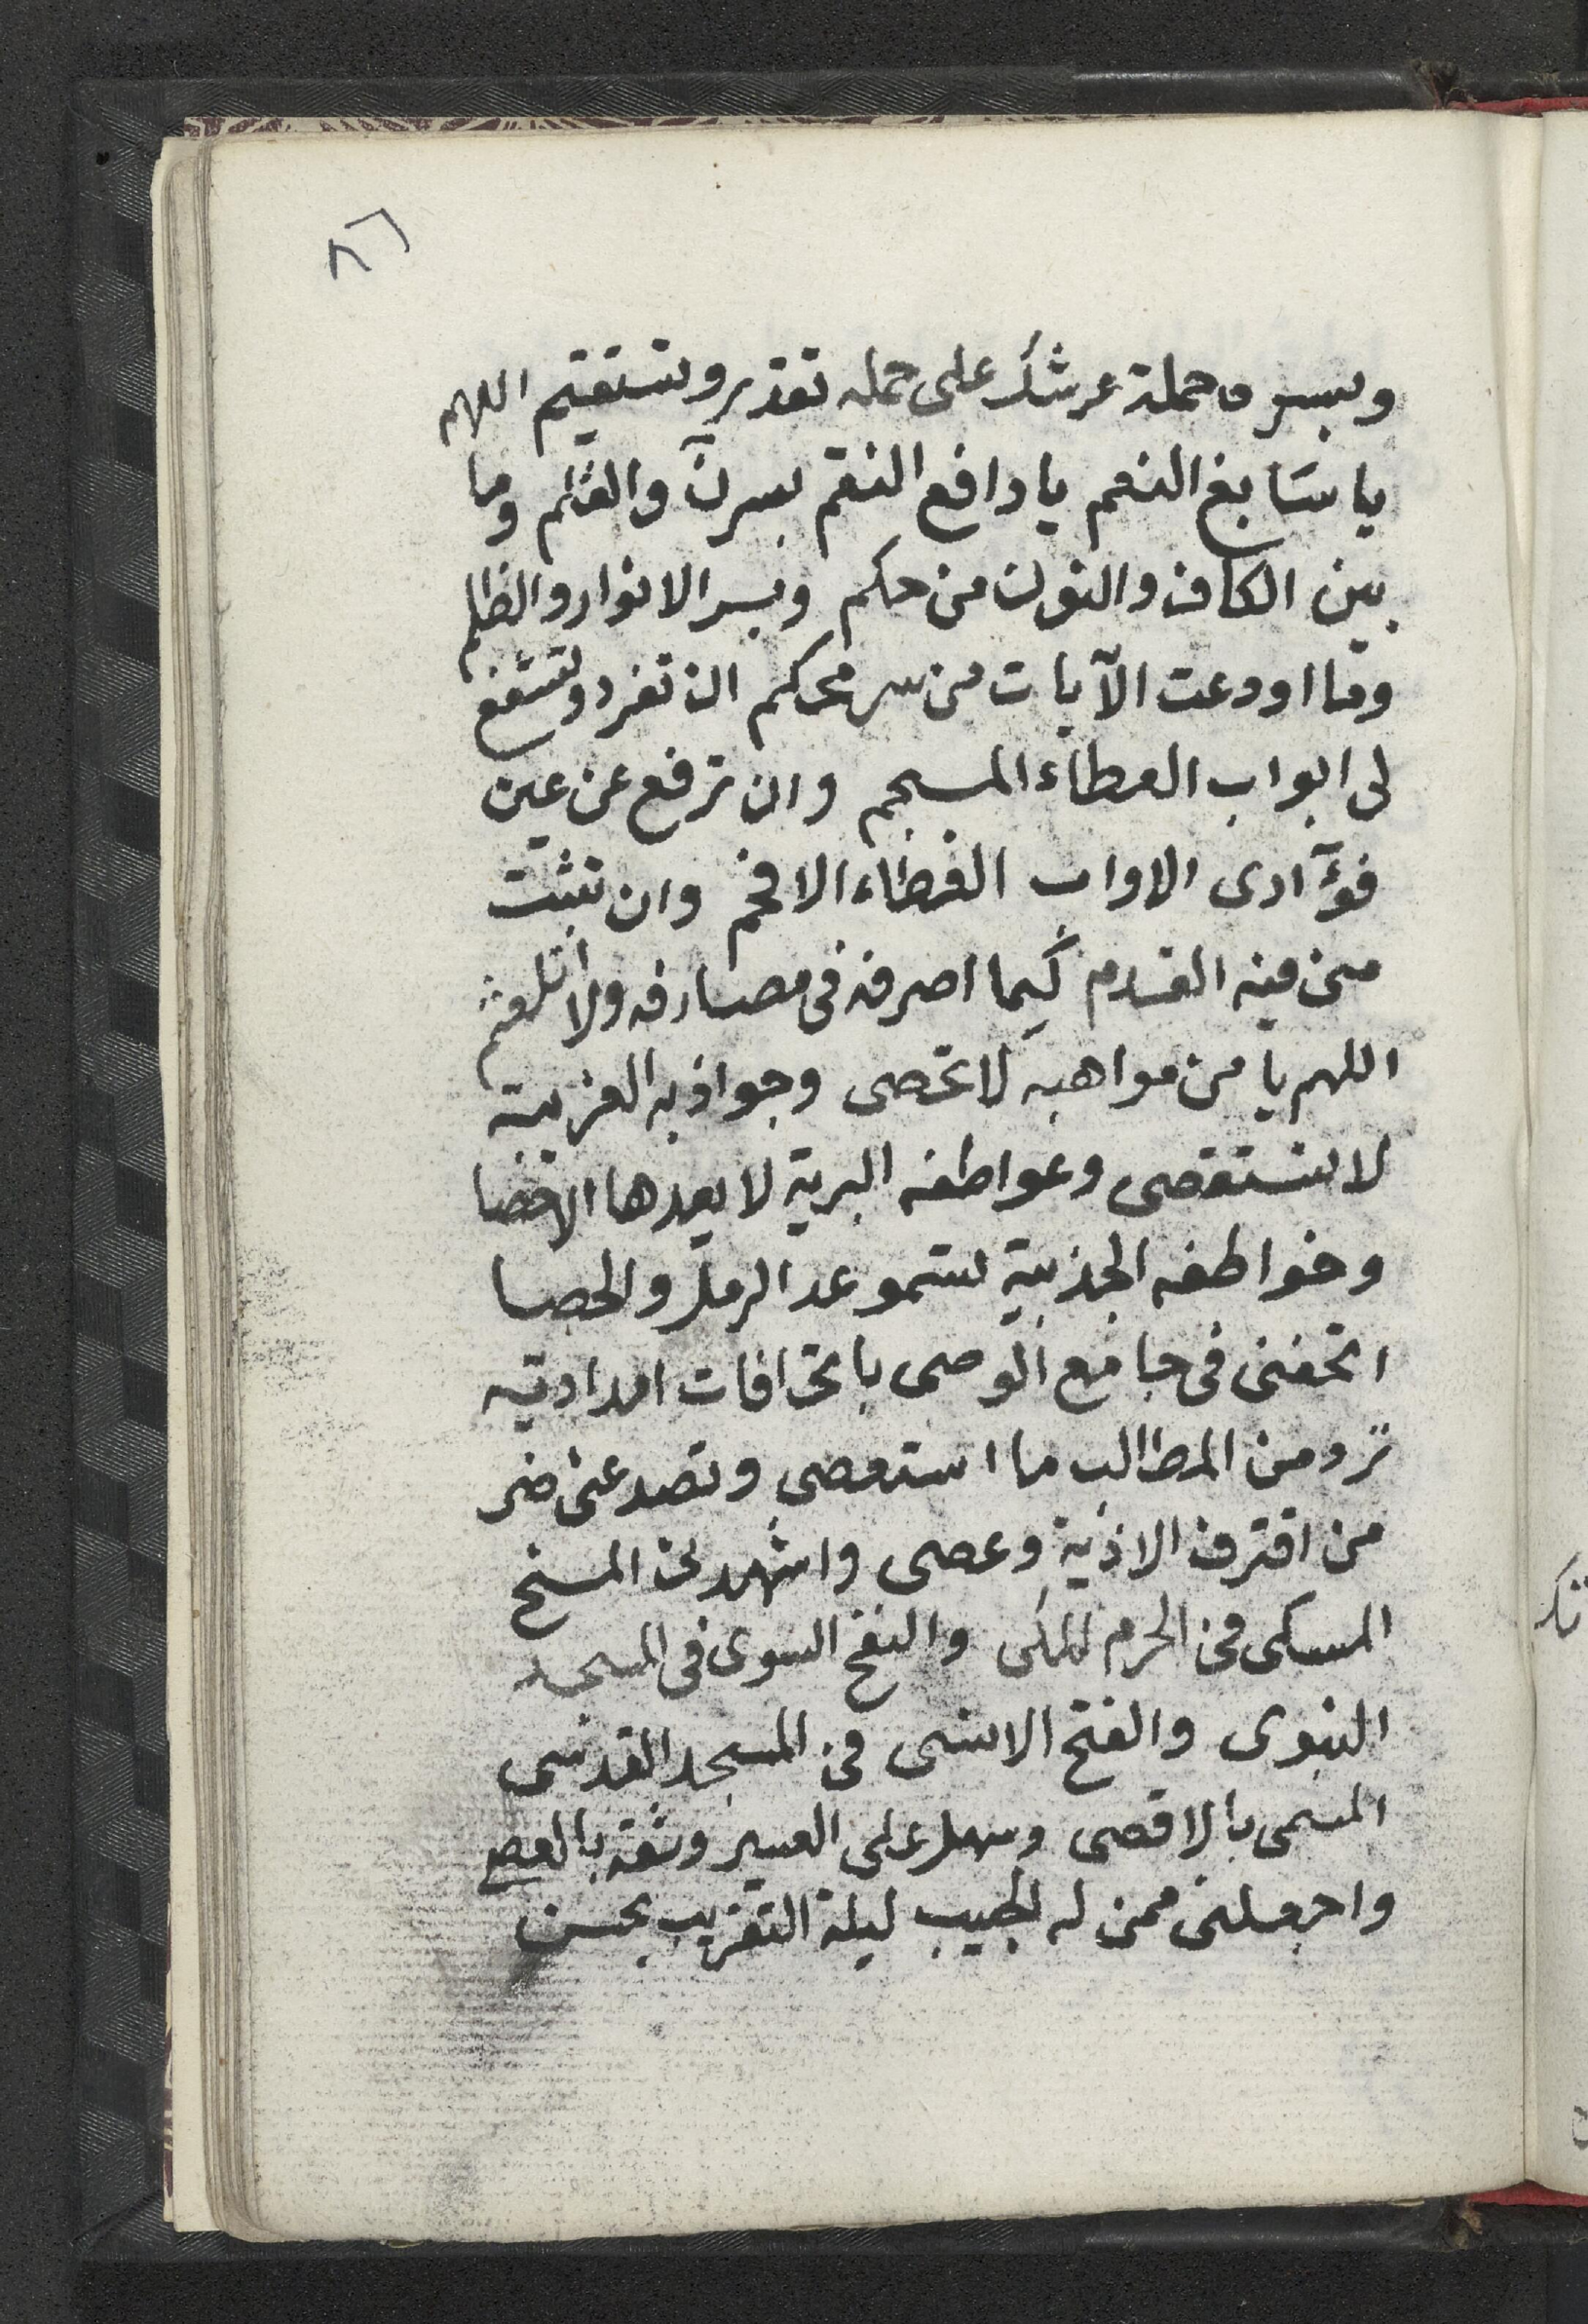 ٨٦
وبسر ما حملة عرشك على حمله تقدر وتستقيم اللهم
يا سابغ النعم يا دافع النقم بسر نٓ والقلم وما
بين الكاف والنون من حكم وبسر الانوار والظلم
وما اودعت الآيات من سر محكم ان تفرد وتشفع
لى ابواب العطاء المسجم وان ترفع عن عين
فؤآدى الاواب الغطاء الافخم وان تثبت
منى فيه القدم كيما اصرفه فى مصارفه ولا اتلعثم
اللهم يا من مواهبه لا تحصى وجواذبه الغزيية
لا تستقصى وعواطفه البرية لا يعدها الاخصا
وخواطفه الجذبية تسمو عد الرمل والحصا
اتحفنى فى جامع الوصى باتحافات امدادية
تروم من المطالب ما استعصى وتصد عنى ضر
من اقترف الاذية وعصى واشهدنى المسخ
المسكى فى الحرم المكى والنفخ السوى فى المسجد
النبوى والفتح الاسنى فى المسجد القدسى
المسمى بالاقصى وسهل على العسير وثقة بالعصى
واجعلنى ممن له لطيب ليلة التقريب بحسن
تك